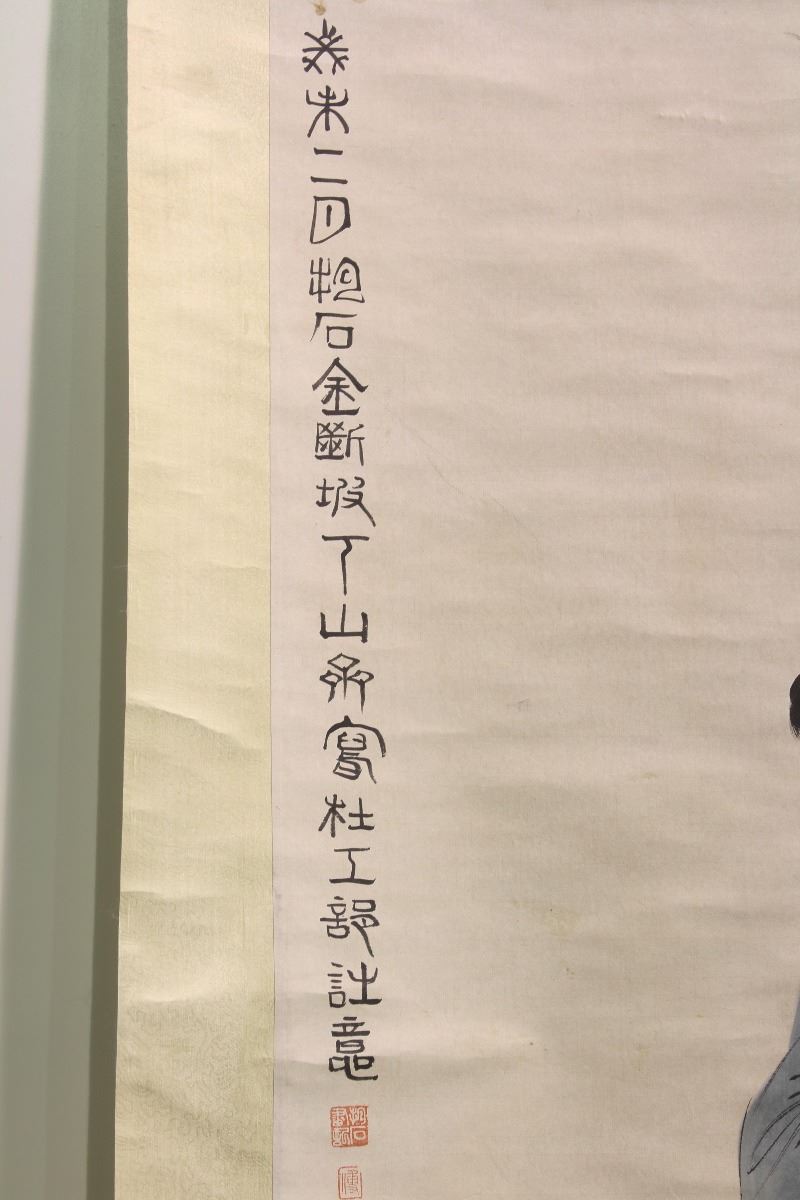 癸未二月抱石金剛坡下山齋寫杜工部詩意
傅